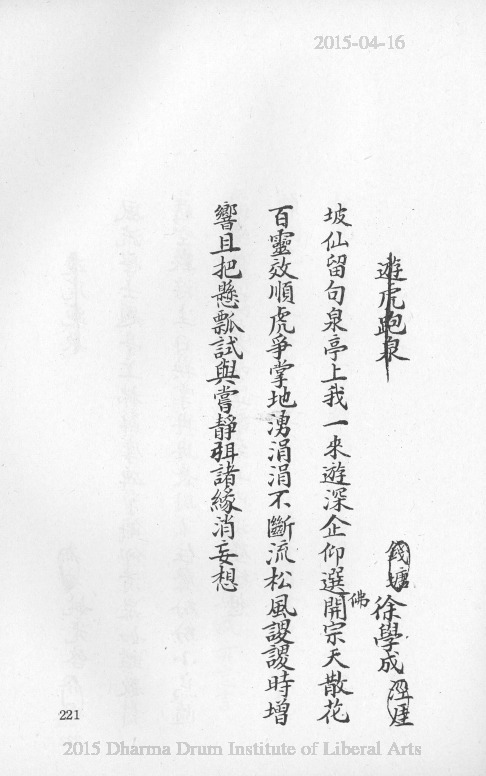 2015-04-16
遊虎跑泉
錢塘徐學成涇崖
坡仙留句泉亭上我一來遊深企仰選佛開宗天散花
百靈效順虎爭掌地湧涓涓不斷流松風謖謖時增
響且把懸瓢試與嘗靜弭諸緣消妄想
221
2015 Dharma Drum Institute of Liberal Arts